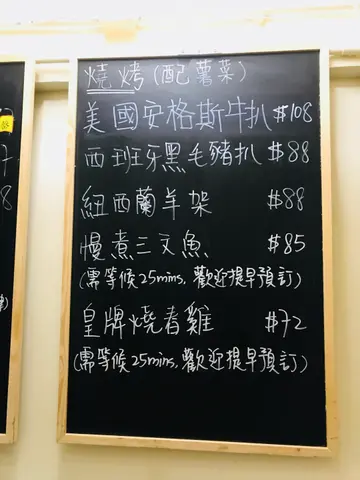 燒烤(配薯菜)
美國安格斯牛扒 $108
西班牙黑毛豬扒 $88
紐西蘭羊架 $88
慢煮三文魚 $85
(需等候25mins,歡迎提早預訂)
皇牌燒春雞 $72
(需等候25mins,歡迎提早預訂)